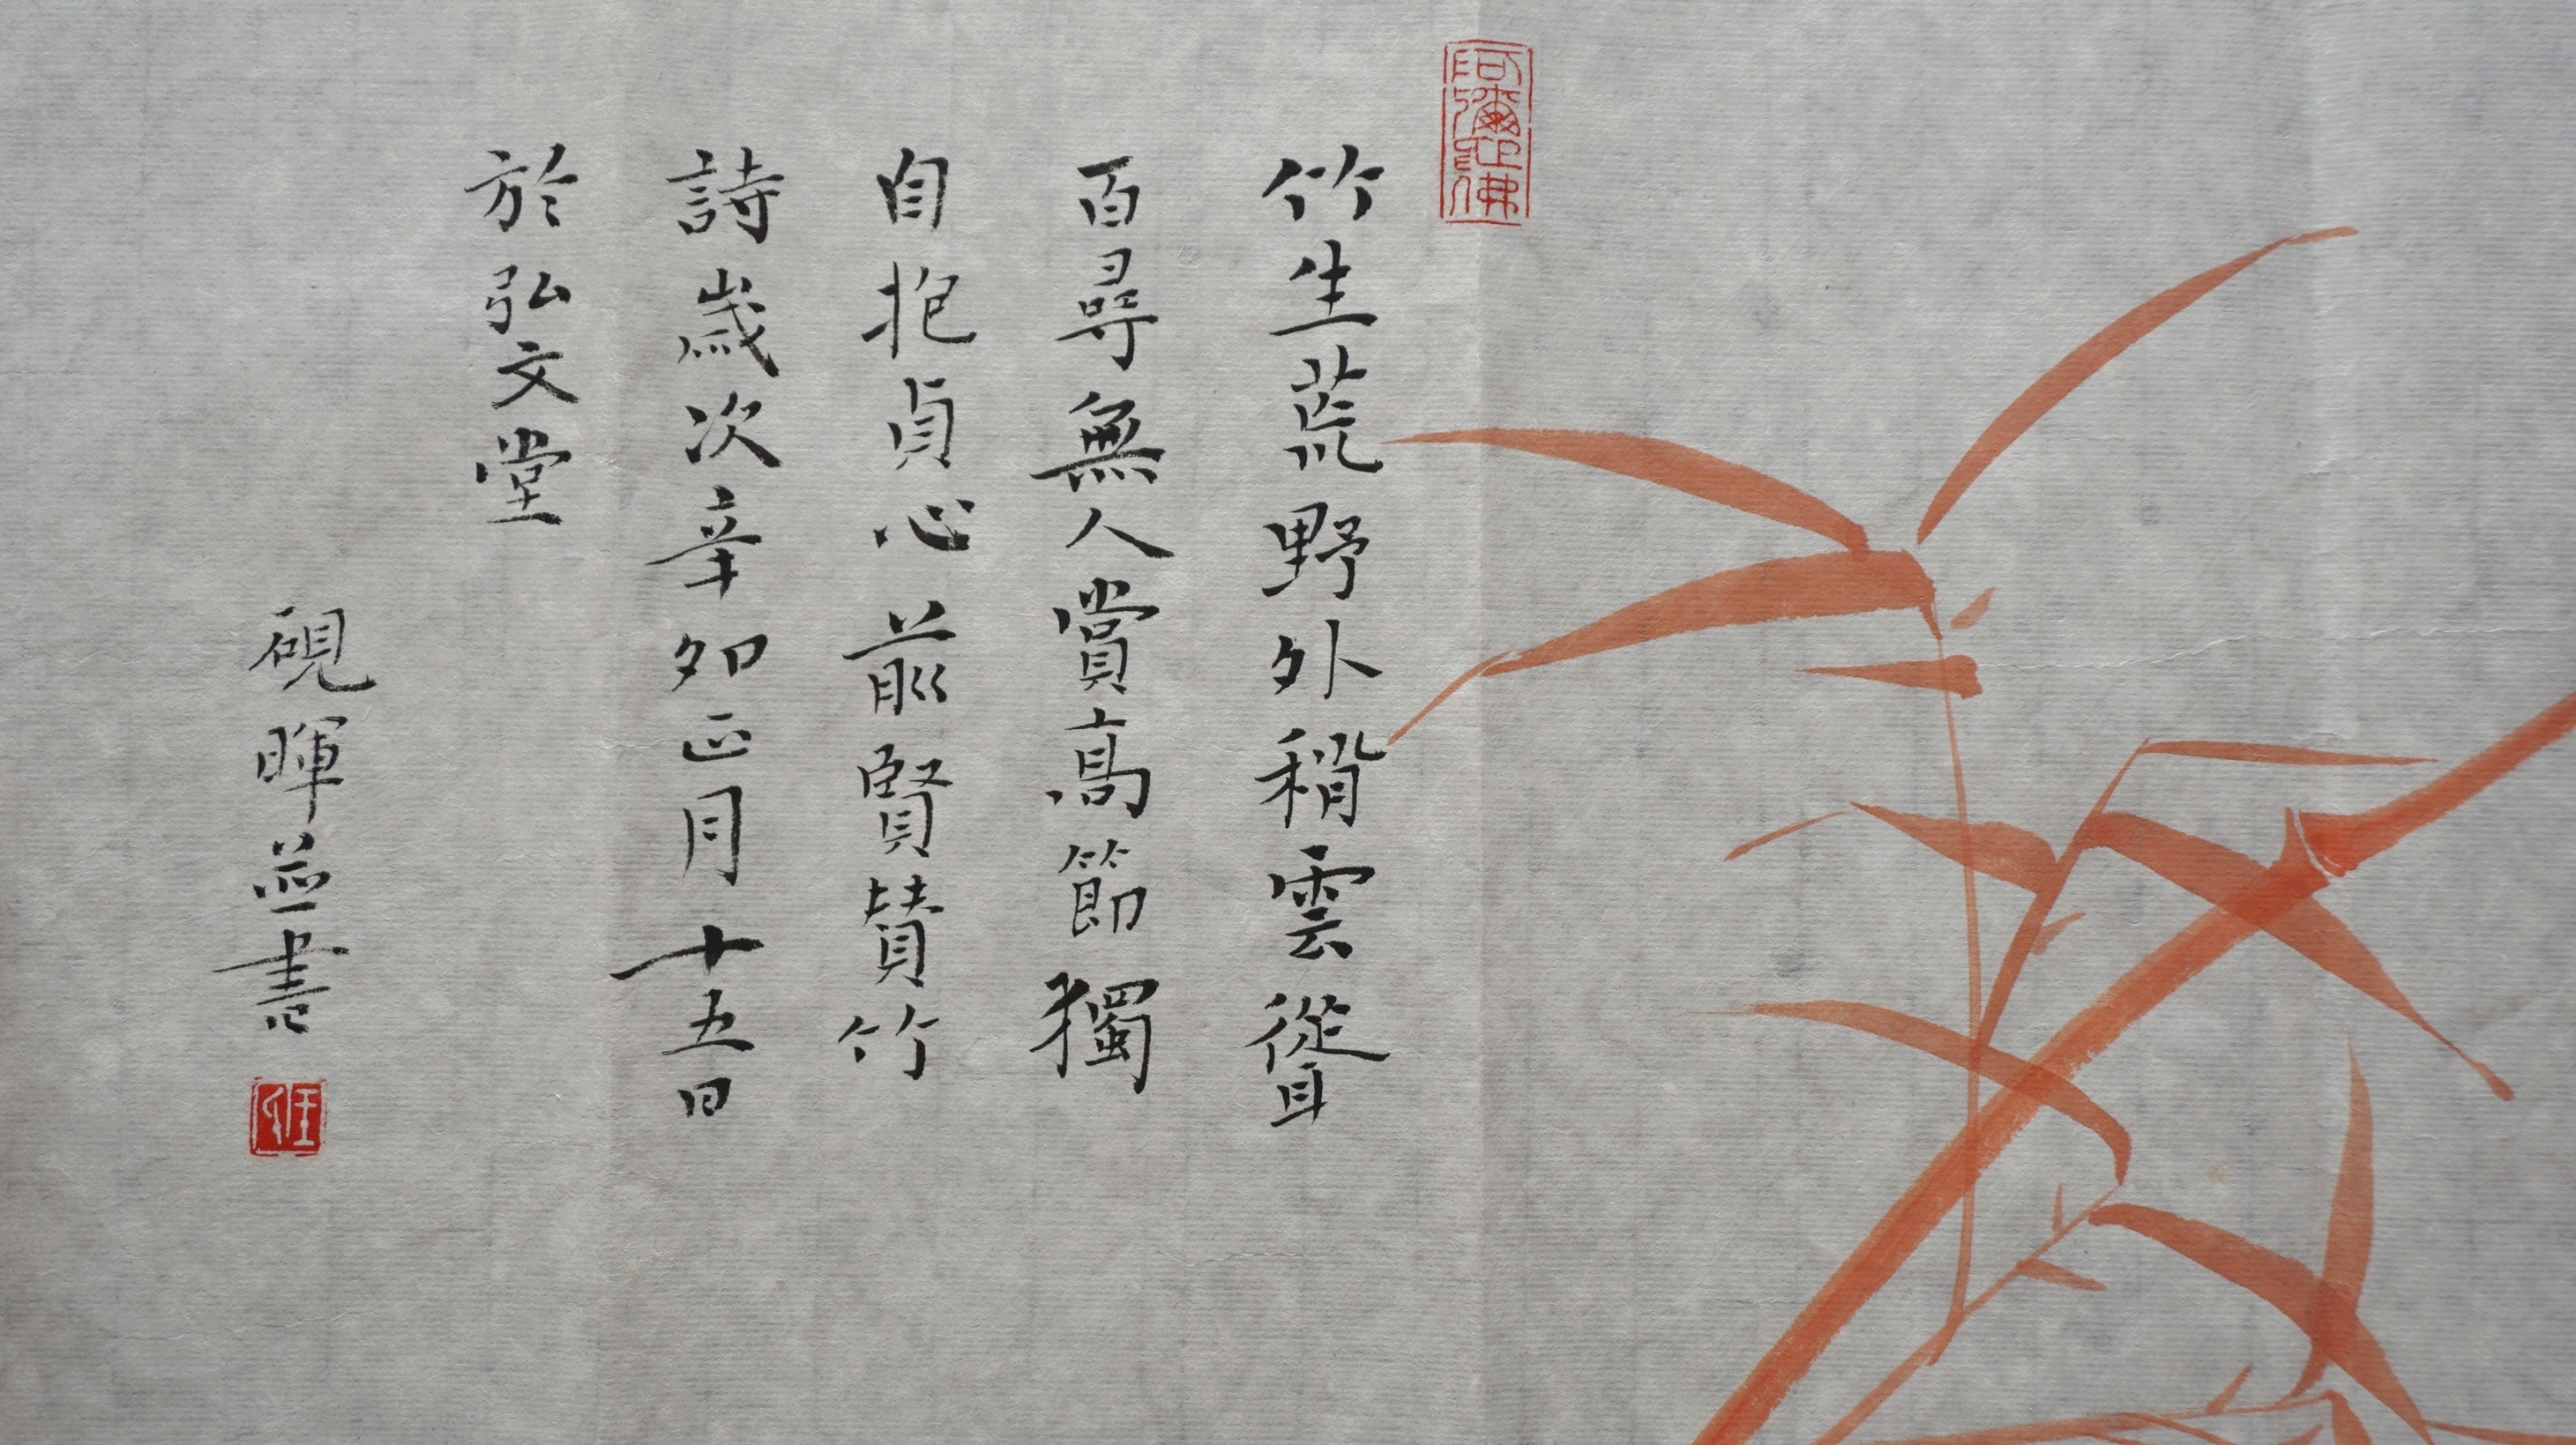 阿彌陀佛
竹生荒野外稍雲聳
百尋無人賞高節獨
自抱貞心前賢贊竹
詩歲次辛卯正月十五日
於弘文堂
硯暉並書